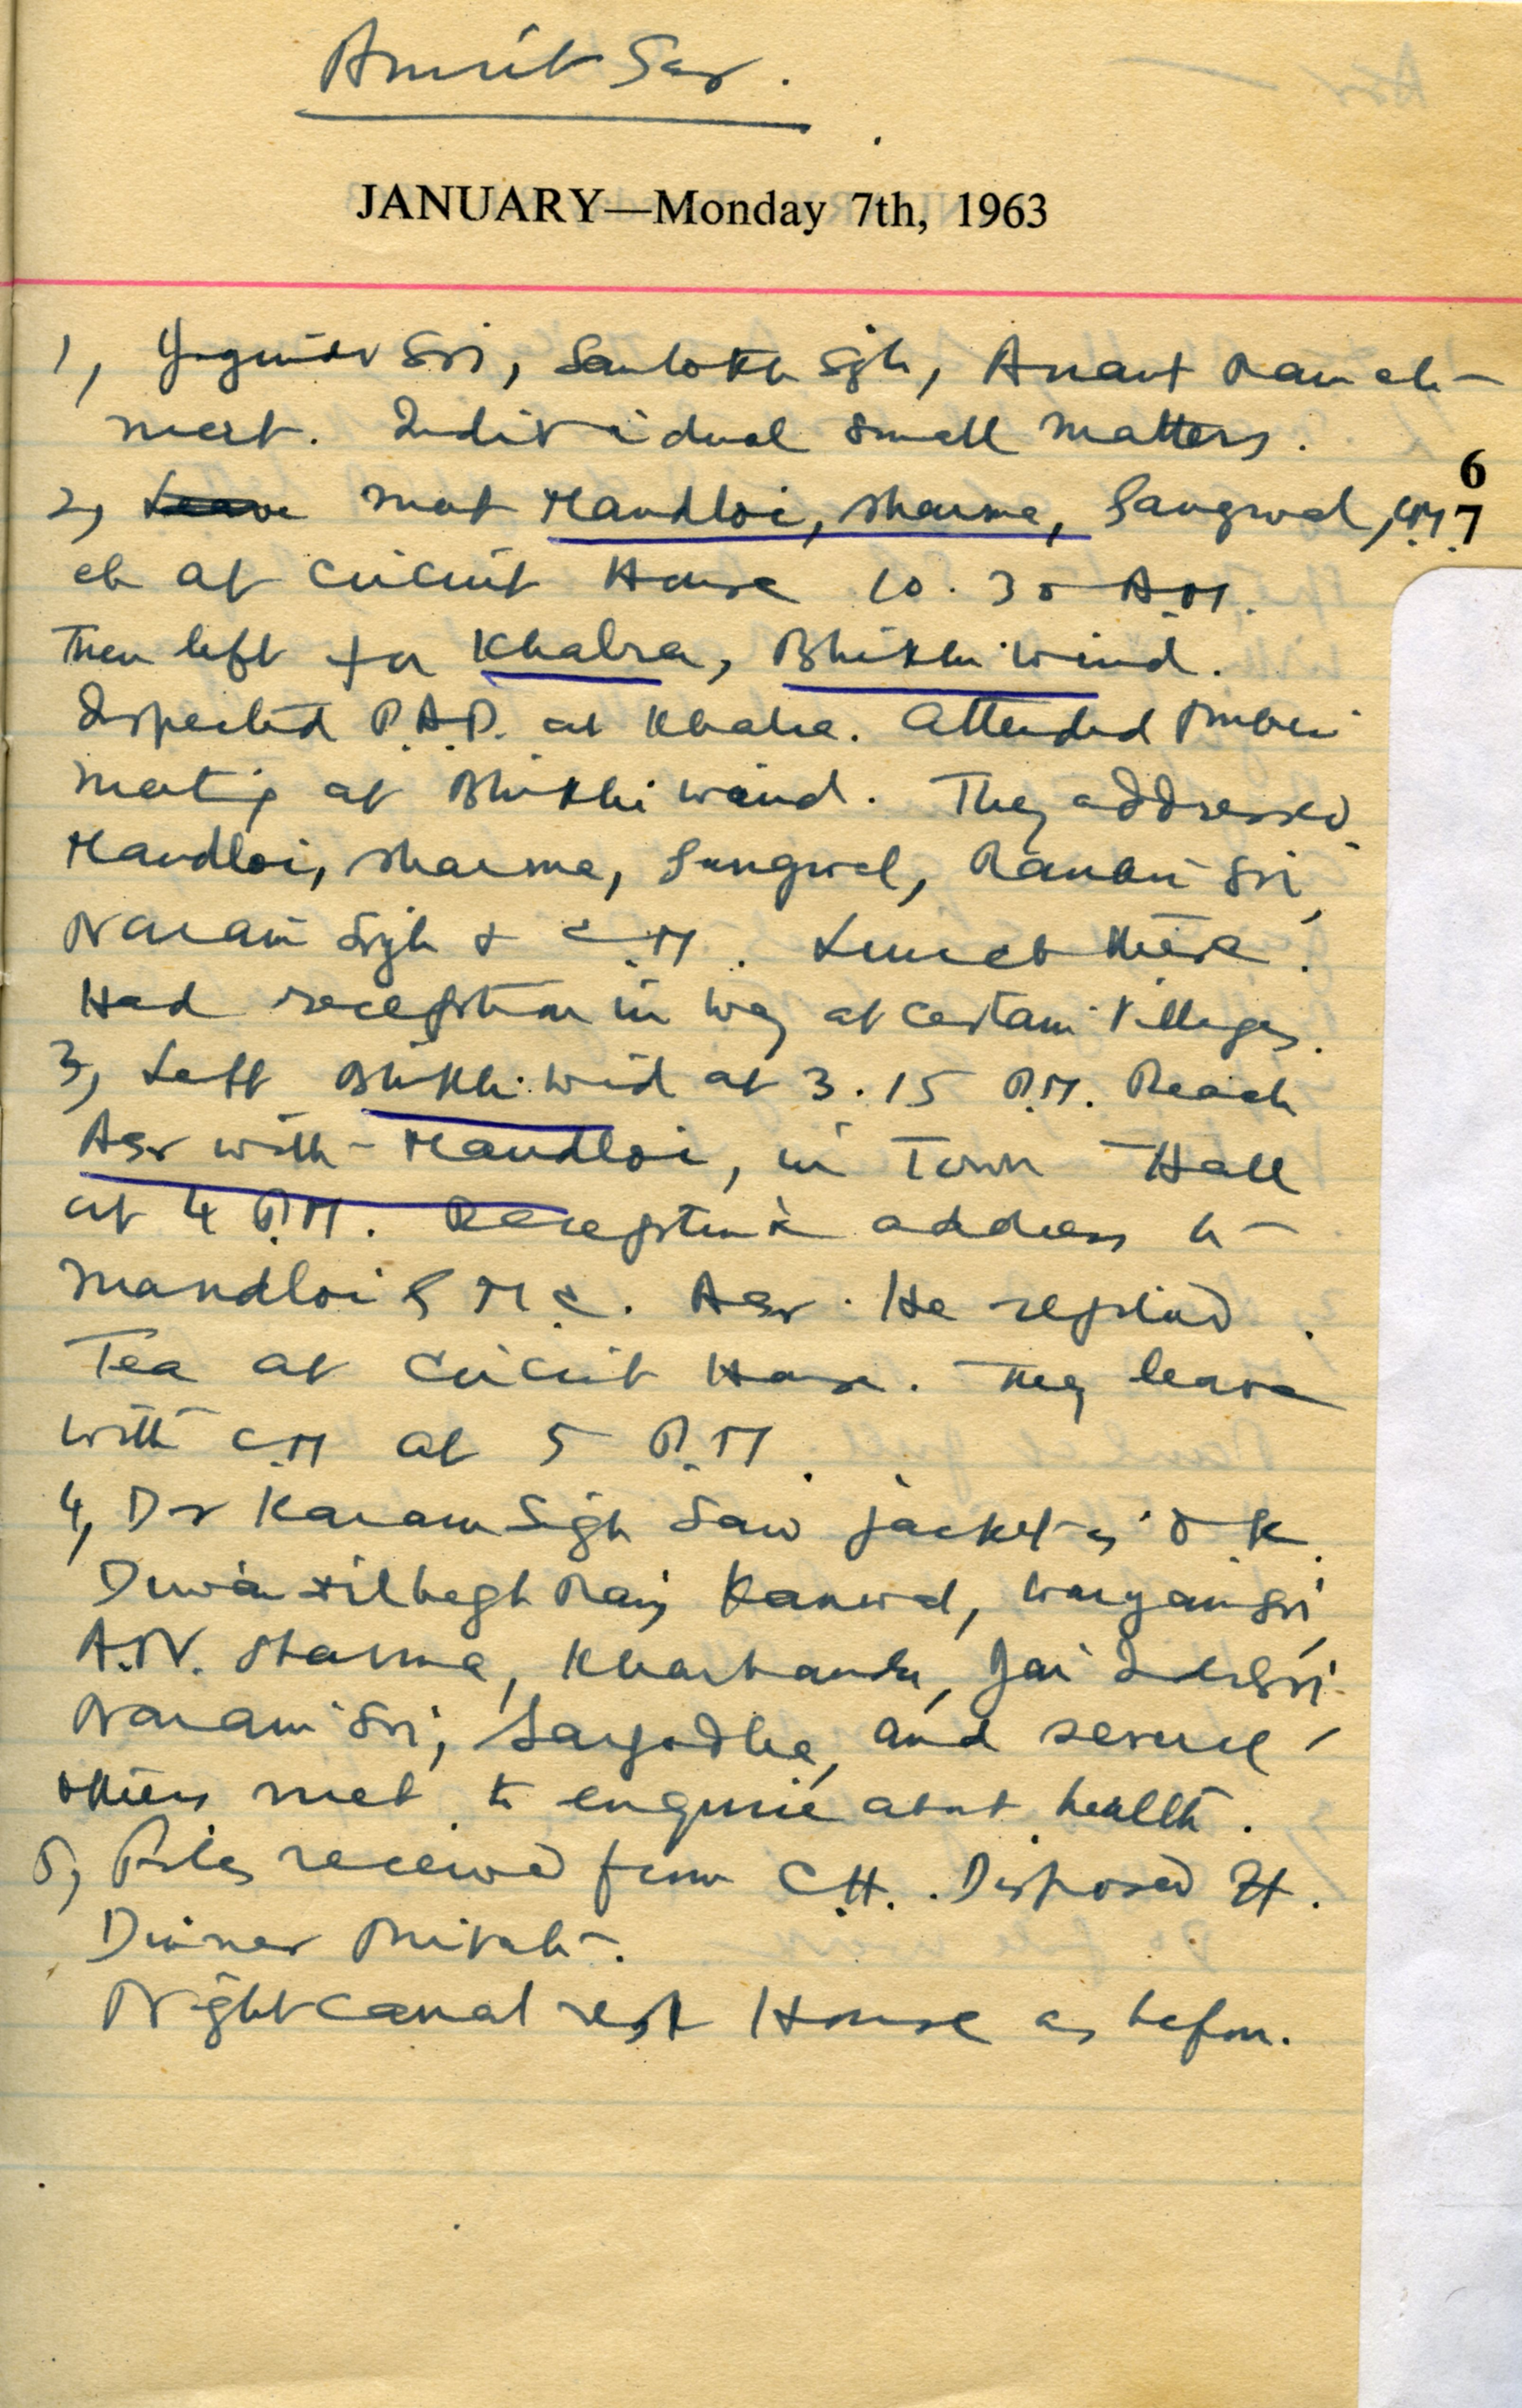 Amrit Sar.
JANUARY—Monday 7th, 1963
1, Joginder Sri, Santokh Sgh, Anant Ram etc
meet. Individual small matters.
6
2, Leave met Mandloi, Sharma, Sangwal, C.M.
7
etc at Circuit House 10.30 A.M.
Then left for Khalra, Bhikhiwind.
Inspected P.A.P. at Khalra. Attended Public
meeting at Bhikhiwind. They addressed
Mandloi, Sharma, Sangwal, Ranbir Sri,
Narain Sigh & C.M. Lunch there.
Had reception in way at certain villages.
3, Left Bhikhiwid at 3.15 P.M. Reach
Asr with Mandloi, in Town Hall
at 4 P.M. Reception address to
Mandloi M.C. Asr. He replied.
Tea at Circuit House. They leave
with C.M at 5 P.M.
4, Dr Karam Sigh saw jacket is O.K.
Diwan Dilbagh Rai, Kanwal, Waryam Sri,
A.N. Sharma, Kharbanda, Jai Inder Sri,
Narain Sri, and several
others met to enquire about health.
5, Files received from C.H. Disposed it.
Dinner Private.
Night canal rest House as before.